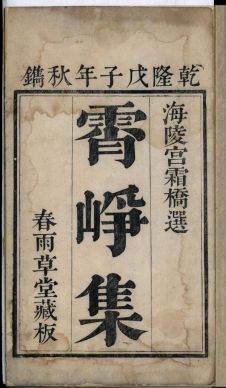 乾隆戊子年秋鐫
海陵宮霜橋選
霄崢集
春雨草堂藏板